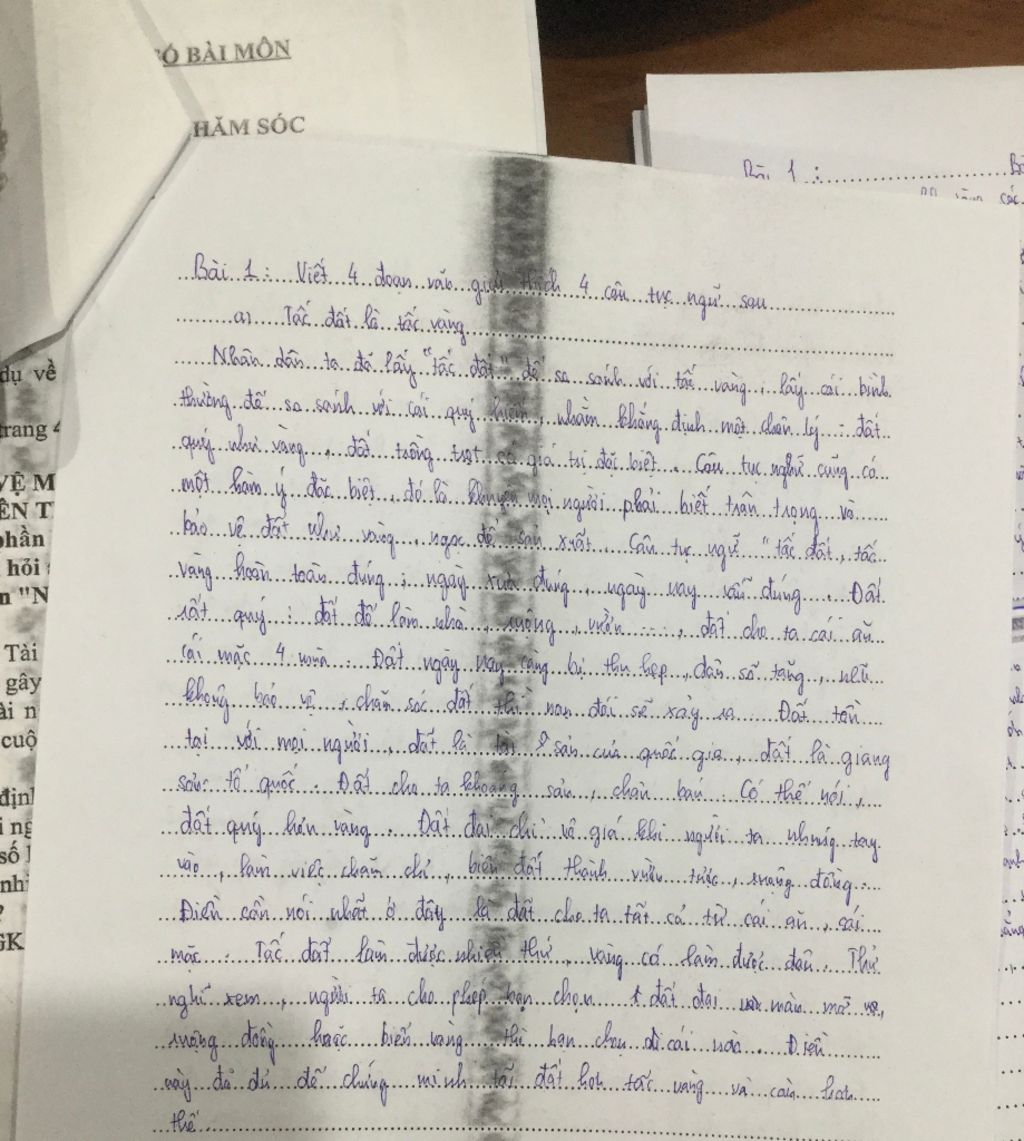 Ó BÀI MÔN
HĂM SÓC
Bài 1 :
các
dụ về
trang 4
VỆ M
ÊN T
phần
hỏi
n "N
Tài
gây
ài n
cuộ
định
i ng
số
nhi
?
GK
Bài 1 : Viết 4 đoạn văn giải thích 4 câu tục ngữ sau
a) Tấc đất là tấc vàng
Nhân dân ta đã lấy "tấc đất" để so sánh với tấc vàng, lấy cái bình
thường để so sánh với cái quý hiếm, nhằm khẳng định một chân lý : đất
quý như vàng, đất trồng trọt có giá trị đặc biệt. Câu tục nghữ cũng có
một hàm ý đặc biệt, đó là khuyên mọi người phải biết trân trọng và
bảo vệ đất như vàng, ngọc để sản xuất. Câu tục ngữ "tấc đất, tấc
vàng hoàn toàn đúng, ngày xưa đúng, ngày nay vẫn đúng. Đất
rất quý : đất để làm nhà, ruộng, vườn ..., đất cho ta cái ăn
cái mặc 4 mùa. Đất ngày nay càng bị thu hẹp, dân số tăng, nếu
không bảo vệ, chăm sóc đất thì nạn đói sẽ xảy ra. Đất tồn
tại với mọi người, đất là tài sản của quốc gia, đất là giang
sơn tổ quốc. Đất cho ta khoáng sản, chăn bán. Có thể nói,
đất quý hơn vàng. Đất đai chỉ vô giá khi người ta nhúng tay
vào, làm việc chăm chỉ, biến đất thành vườn tược, ruộng đồng.
Điều cần nói nhất ở đây là đất cho ta tất cả từ cái ăn, cái
mặc. Tấc đất làm được nhiều thứ, vàng có làm được đâu. Thử
nghĩ xem, người ta cho phép bạn chọn đất đai màu mỡ
ruộng đồng hoặc biển vàng thì bạn chọn cái nào. Điều
này đã đủ để chứng minh tấc đất hơn tấc vàng và còn hơn
thế.